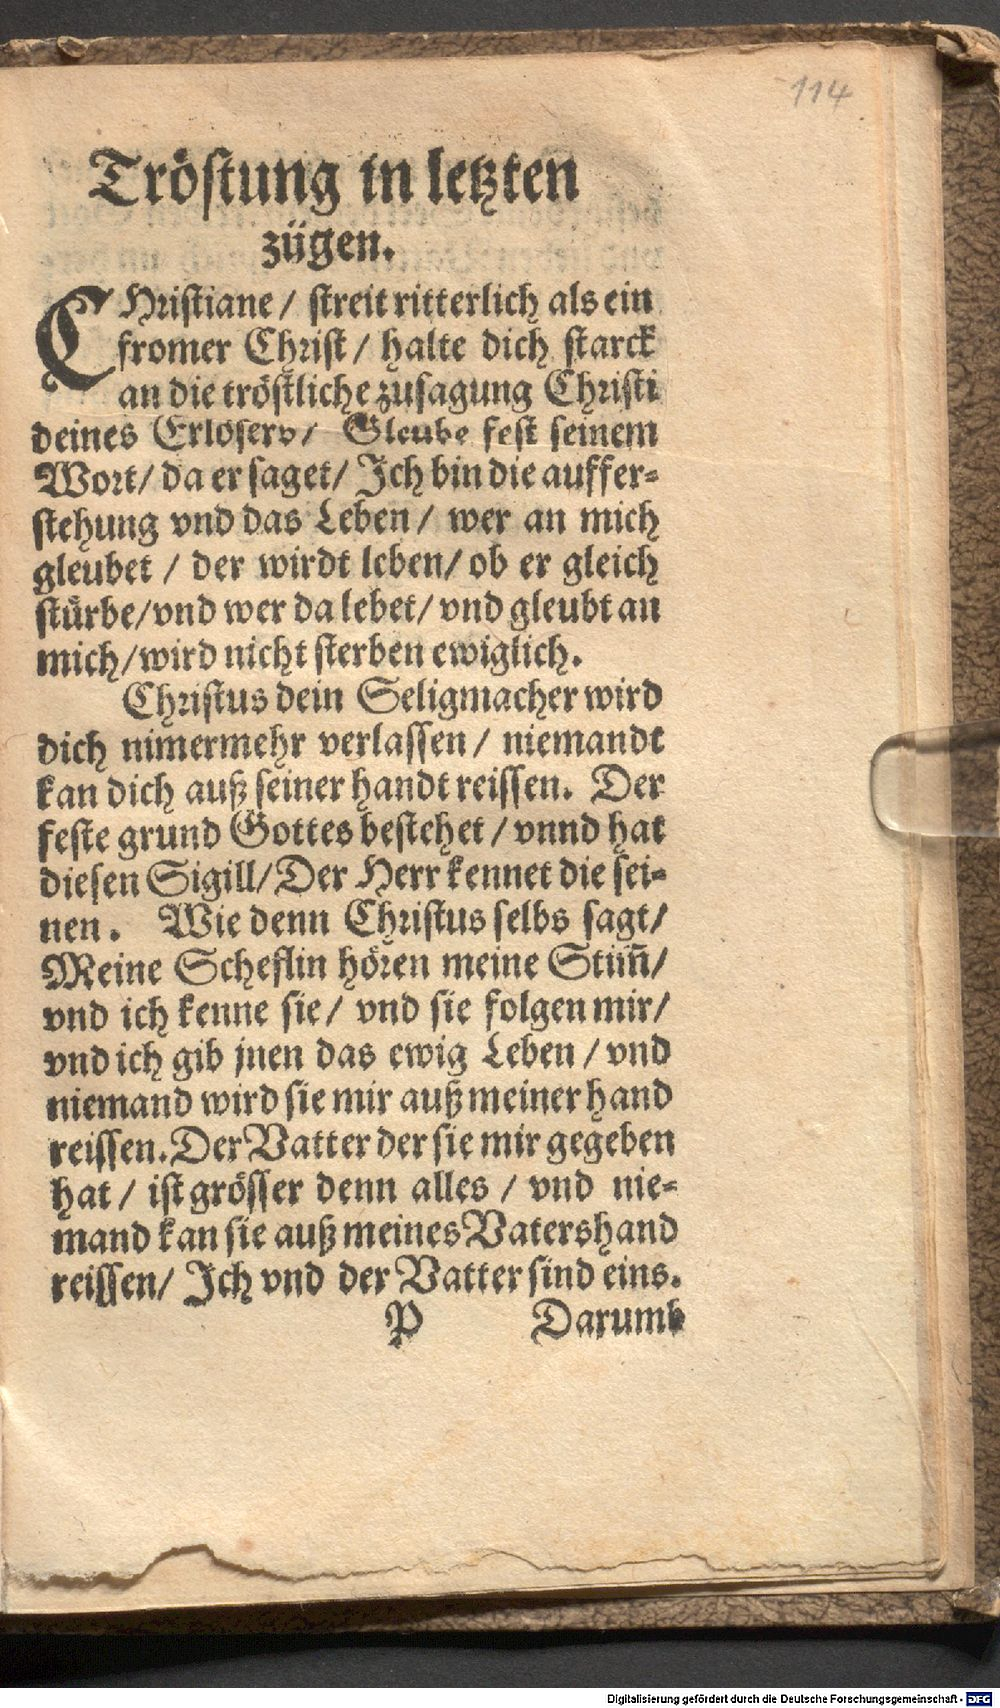 114
Tröstung in letzten
zügen.
CHristiane / streit ritterlich als ein
fromer Christ / halte dich starck
an die tröstliche zusagung Christi
deines Erlösers / Gleube fest seinem
Wort / da er saget / Ich bin die auffer-
stehung vnd das Leben / wer an mich
gleubet / der wirdt leben / ob er gleich
stürbe / vnd wer da lebet / vnd gleubt an
mich / wird nicht sterben ewiglich.
Christus dein Seligmacher wird
dich nimermehr verlassen / niemandt
kan dich auß seiner handt reissen. Der
feste grund Gottes bestehet / vnnd hat
diesen Sigill / Der Herr kennet die sei-
nen. Wie denn Christus selbs sagt /
Meine Scheflin hören meine Stim̃ /
vnd ich kenne sie / vnd sie folgen mir /
vnd ich gib jnen das ewig Leben / vnd
niemand wird sie mir auß meiner hand
reissen. Der Vatter der sie mir gegeben
hat / ist grösser denn alles / vnd nie-
mand kan sie auß meines Vaters hand
reissen / Ich vnd der Vatter sind eins.
P Darumb
Digitalisierung gefördert durch die Deutsche Forschungsgemeinschaft - DFG